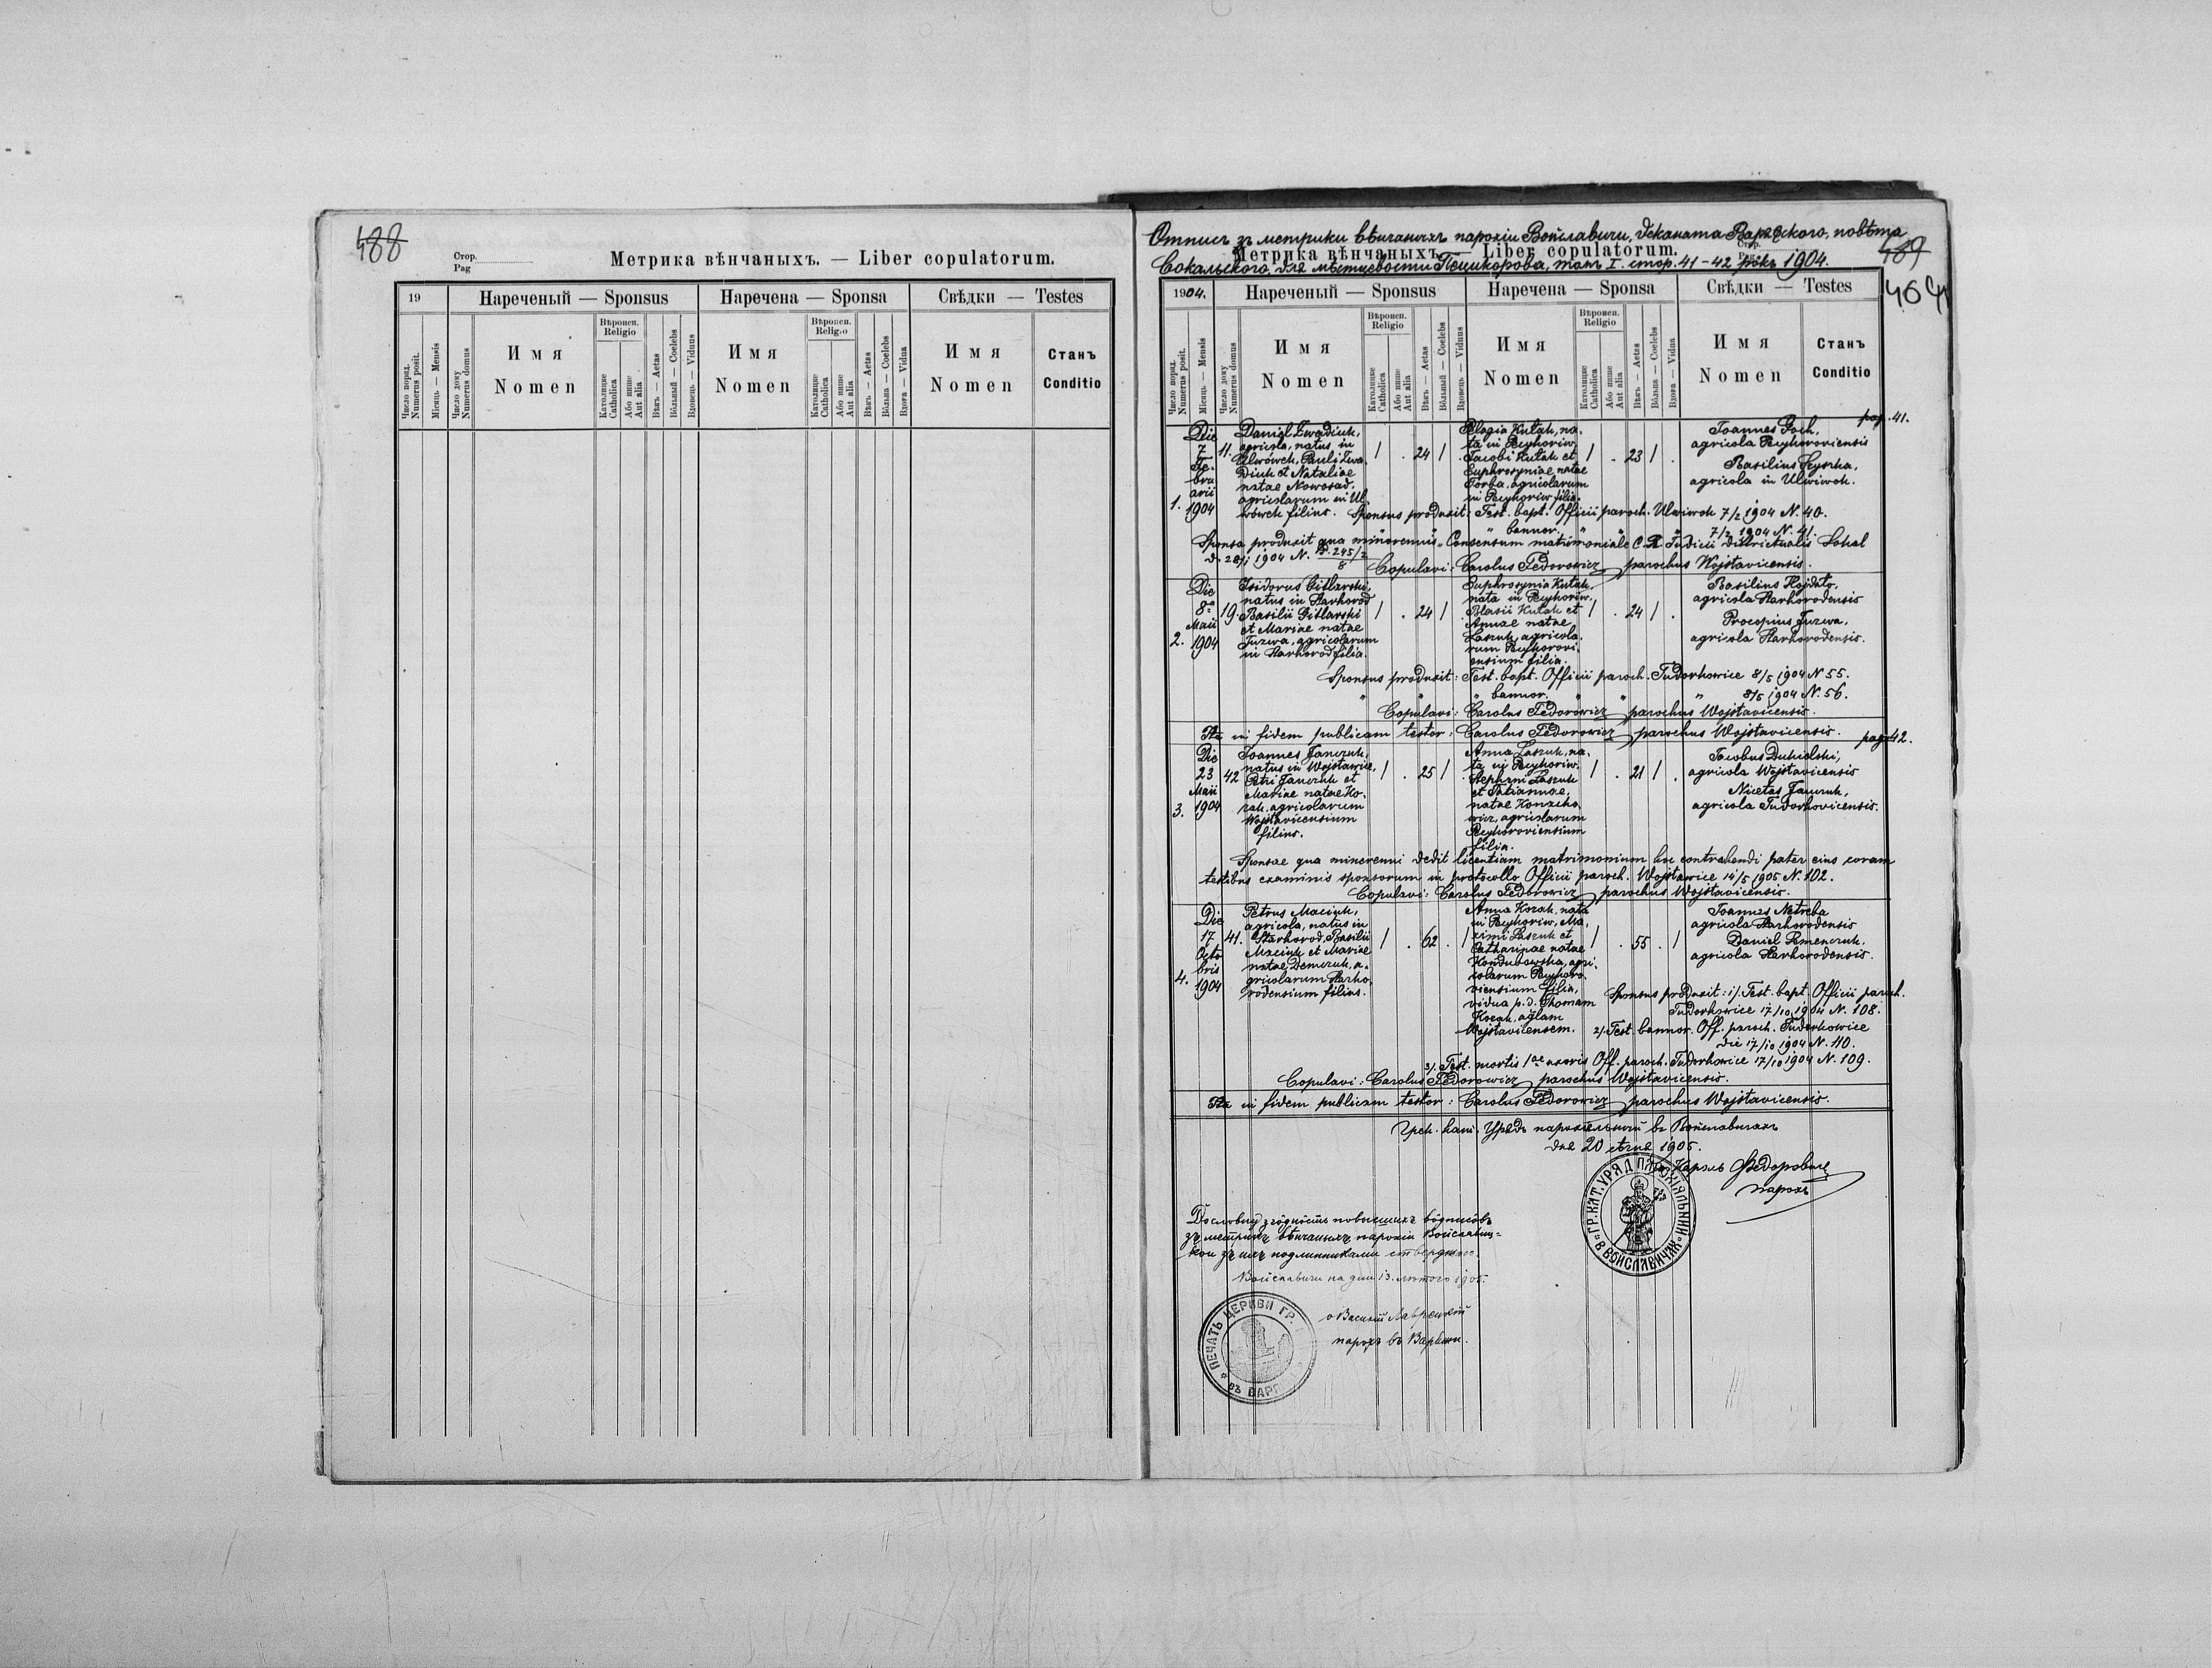 488
Стор.
Pag
Метрика вѣнчаныхъ. — Liber copulatorum.
19
Нареченый — Sponsus
Наречена — Sponsa
Свѣдки — Testes
Число поряд.
Numerus posit.
Місяць — Mensis
Число дому
Numerus domus
Имя
Nomen
Вѣроисп.
Religio
Католицке
Catholica
Або инше
Aut alia
Вѣкъ — Aetas
Вôльный — Coelebs
Вдовець — Viduus
Имя
Nomen
Вѣроисп.
Religio
Католицке
Catholica
Або инше
Aut alia
Вѣкъ — Aetas
Вôльна — Coelebs
Вдова — Vidua
Имя
Nomen
Станъ
Conditio
Отпись зъ метрики вѣнчаныхъ парохіи Войславичи, деканата Варяжского, повѣта
489
Стор.
Pag
Метрика вѣнчаныхъ. — Liber copulatorum.
Сокальского, для мѣстцевости Пешкорова, томъ I. стор. 41-42 рокъ 1904.
1904.
Нареченый — Sponsus
Наречена — Sponsa
Свѣдки — Testes
Число поряд.
Numerus posit.
Місяць — Mensis
Число дому
Numerus domus
Имя
Nomen
Вѣроисп.
Religio
Католицке
Catholica
Або инше
Aut alia
Вѣкъ — Aetas
Вôльный — Coelebs
Вдовець — Viduus
Имя
Nomen
Вѣроисп.
Religio
Католицке
Catholica
Або инше
Aut alia
Вѣкъ — Aetas
Вôльна — Coelebs
Вдова — Vidua
Имя
Nomen
Станъ
Conditio
pag. 41.
1.
Die
7
Fe-
bru
arii
1904
11.
Daniel Zwadiuk,
agricola, natus in
Ulwówek, Pauli Zwa-
diuk et Nataliae
natae Nowosad,
agricolarum in Ul
wówek filius.
/ . 24 / .
Pelagia Kutak, na-
ta in Peyhoriw,
Jacobi Kutak et
Euphrosyniae natae
Torba, agricolarum
in Peyhoriw filia.
/ . 23 / .
Joannes Poch,
agricola Peyhoroviensis
Basilius Seyszka,
agricola in Ulwiwok.
Sponsus produxit: Test. bapt. Officii paroch. Ulwiwok 7/2 1904 N. 40.
" " " bannor. " " " 7/2 1904 N. 41.
Sponsa produxit qua minorennis: Consensum matrimoniale C. R. Judicii districtualis Sokal
d. 28/1 1904 N. P. 245/2
8
Copulavi: Carolus Fedorowicz parochus Wojsławicensis.
2.
Die
8va
Maii
1904
19.
Isidorus Gitlarski,
natus in Starhorod
Basilii Gitlarski
et Mariae natae
Juzwa, agricolarum
in Starhorod filia.
/ . 24 /
Euphrosynia Kutak,
nata in Peyhoriw,
Blasii Kutak et
Annae natae
Laszuk, agricola-
rum Peyhorovi-
ensium filia.
/ . 24 / .
Basilius Hojdało,
agricola Starhorodensis
Procopius Juzwa,
agricola Starhorodensis.
Sponsus produxit: Test. bapt. Officii paroch. Tudorkowice 8/5 1904 N 55.
" " " bannor. " " " 8/5 1904 N. 56.
Copulavi: Carolus Fedorowicz parochus Wojsławicensis.
Ita in fidem publicam testor: Carolus Fedorowicz parochus Wojsławicensis.
pag. 42.
3.
Die
23
Maii
1904
42
Joannes Janczuk,
natus in Wojsławice,
Petri Janczuk et
Mariae natae Ko-
zak, agricolarum
Wojsławicensium
filius.
/ . 25 /
Anna Laszuk, na-
ta in Peyhoriw,
Stephani Laszuk
et Tatiannae,
natae Konach
wicz, agricolarum
Peyhoroviensium
filia.
/ . 21 / .
Jacobus Dukielski,
agricola Wojsławicensis
Nicetas Janczuk,
agricola Tudorkovicensis.
Sponsae qua minorenni dedit licentiam matrimonium hoc contrahendi pater eius coram
testibus examinis sponsorum in protocollo Officii paroch. Wojsławice 14/5 1905 N. 102.
Copulavi: Carolus Fedorowicz parochus Wojsławicensis.
4.
Die
17
Octo
bris
1904
41.
Petrus Maciuk,
agricola, natus in
Starhorod, Basilii
Maciuk et Mariae
natae Demczuk, a-
gricolarum Starho-
rodensium filius.
/ . 62 . /
Anna Kozak, nata
in Peyhoriw, Ma-
ximi Laszuk et
Catharinae natae
Kondubowska, agri-
colarum Peyhoro-
viensium filia,
vidua p. d. Thomam
Kozak, aglam
Wojsławicensem.
/ . 55 . /
Joannes Netreba
agricola Starhorodensis
Daniel Semenczuk,
agricola Starhorodensis.
Sponsus produxit: 1/. Test. bapt. Officii paroch.
Tudorkowice 17/10 1904 N. 108.
2/. Test. bannor. Off. paroch. Tudorkowice
die 17/10 1904 N. 110.
3/. Test. mortis 1ae uxoris Off. paroch. Tudorkowice 17/10 1904 N. 109.
Copulavi: Carolus Fedorowicz parochus Wojsławicensis.
Ita in fidem publicam testor: Carolus Fedorowicz parochus Wojsławicensis.
Грек. кат. Урядъ парохіяльный въ Войславичахъ
дня 20 січня 1905.
Кароль Федоровичъ
парохъ
ГР. КАТ. УРЯД ПАРОХІЯЛЬНИЙ В ВОИСЛАВИЧАХ
Дословну згôдность повысшихъ вôдписôвъ
зъ метрикъ вѣнчаныхъ парохіи Войславиц-
кои зъ ихъ подлинниками стверджаю.
Войславичи на дни 13. лютого 1905.
о Василій Лаврецкій
парохъ въ Варяжи.
ПЕЧАТЬ ЦЕРКВИ ГР. ВЪ ВАРЯ